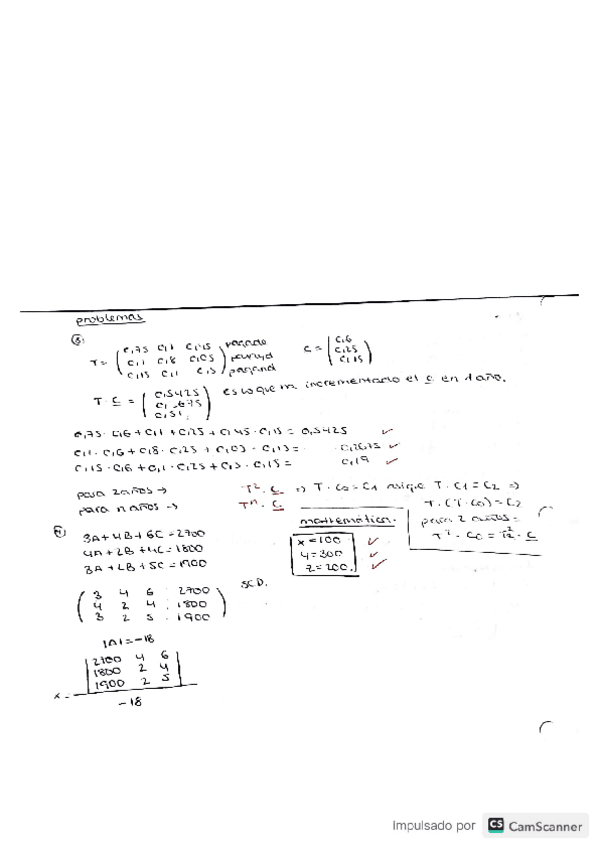 problemas
T = ( 0,75 0,1 0,45
0,1 0,8 0,05
0,15 0,1 0,5 )
C = ( 0,6
0,25
0,15 )
T · C = ( 0,5425
es lo que ha incrementado el C en 1 año.
0,75 · 0,6 + 0,1 · 0,25 + 0,45 · 0,15 = 0,5425 ✓
0,1 · 0,6 + 0,8 · 0,25 + 0,05 · 0,15 = 0,2675 ✓
0,15 · 0,6 + 0,1 · 0,25 + 0,5 · 0,15 = 0,19 ✓
para 2 años → T² · C => T · C0 = C1 T · C1 = C2 =>
para n años → Tⁿ · C
T · (T · C0) = C2
para 2 años =
T² · C0 = T² · C
3A + 4B + 6C = 2700
4A + 2B + 4C = 1800
3A + 2B + 5C = 1900
mathematica.
x = 100 ✓
y = 300 ✓
z = 200. ✓
( 3 4 6 : 2700
4 2 4 : 1800
3 2 5 : 1900 )
S.C.D.
|A| = -18
x = | 2700 4 6
1800 2 4
1900 2 5 |
-18
Impulsado por CS CamScanner